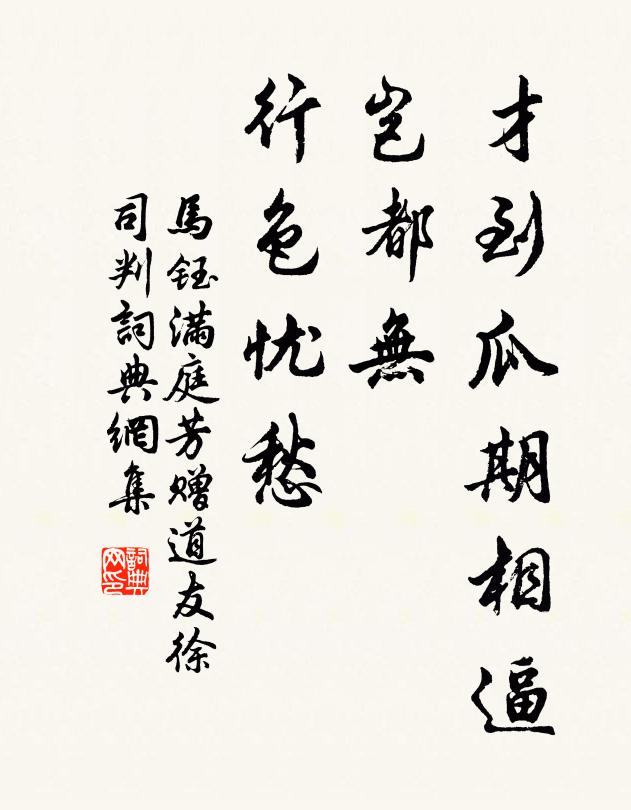 才到瓜期相逼
岂都無
行色忧愁
馬鈺满庭芳赠道友徐
司判詞典網集
詞典网印